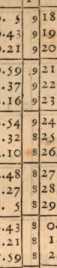 5 9 18
.43 9 19
.21 9 20
.59 9 21
.37 9 22
.16 9 23
.54 9 24
.32 8 25
.10 8 26
.48 8 27
.27 8 28
5 8 29
.43 8 0
.21 8 1
.59 8 2